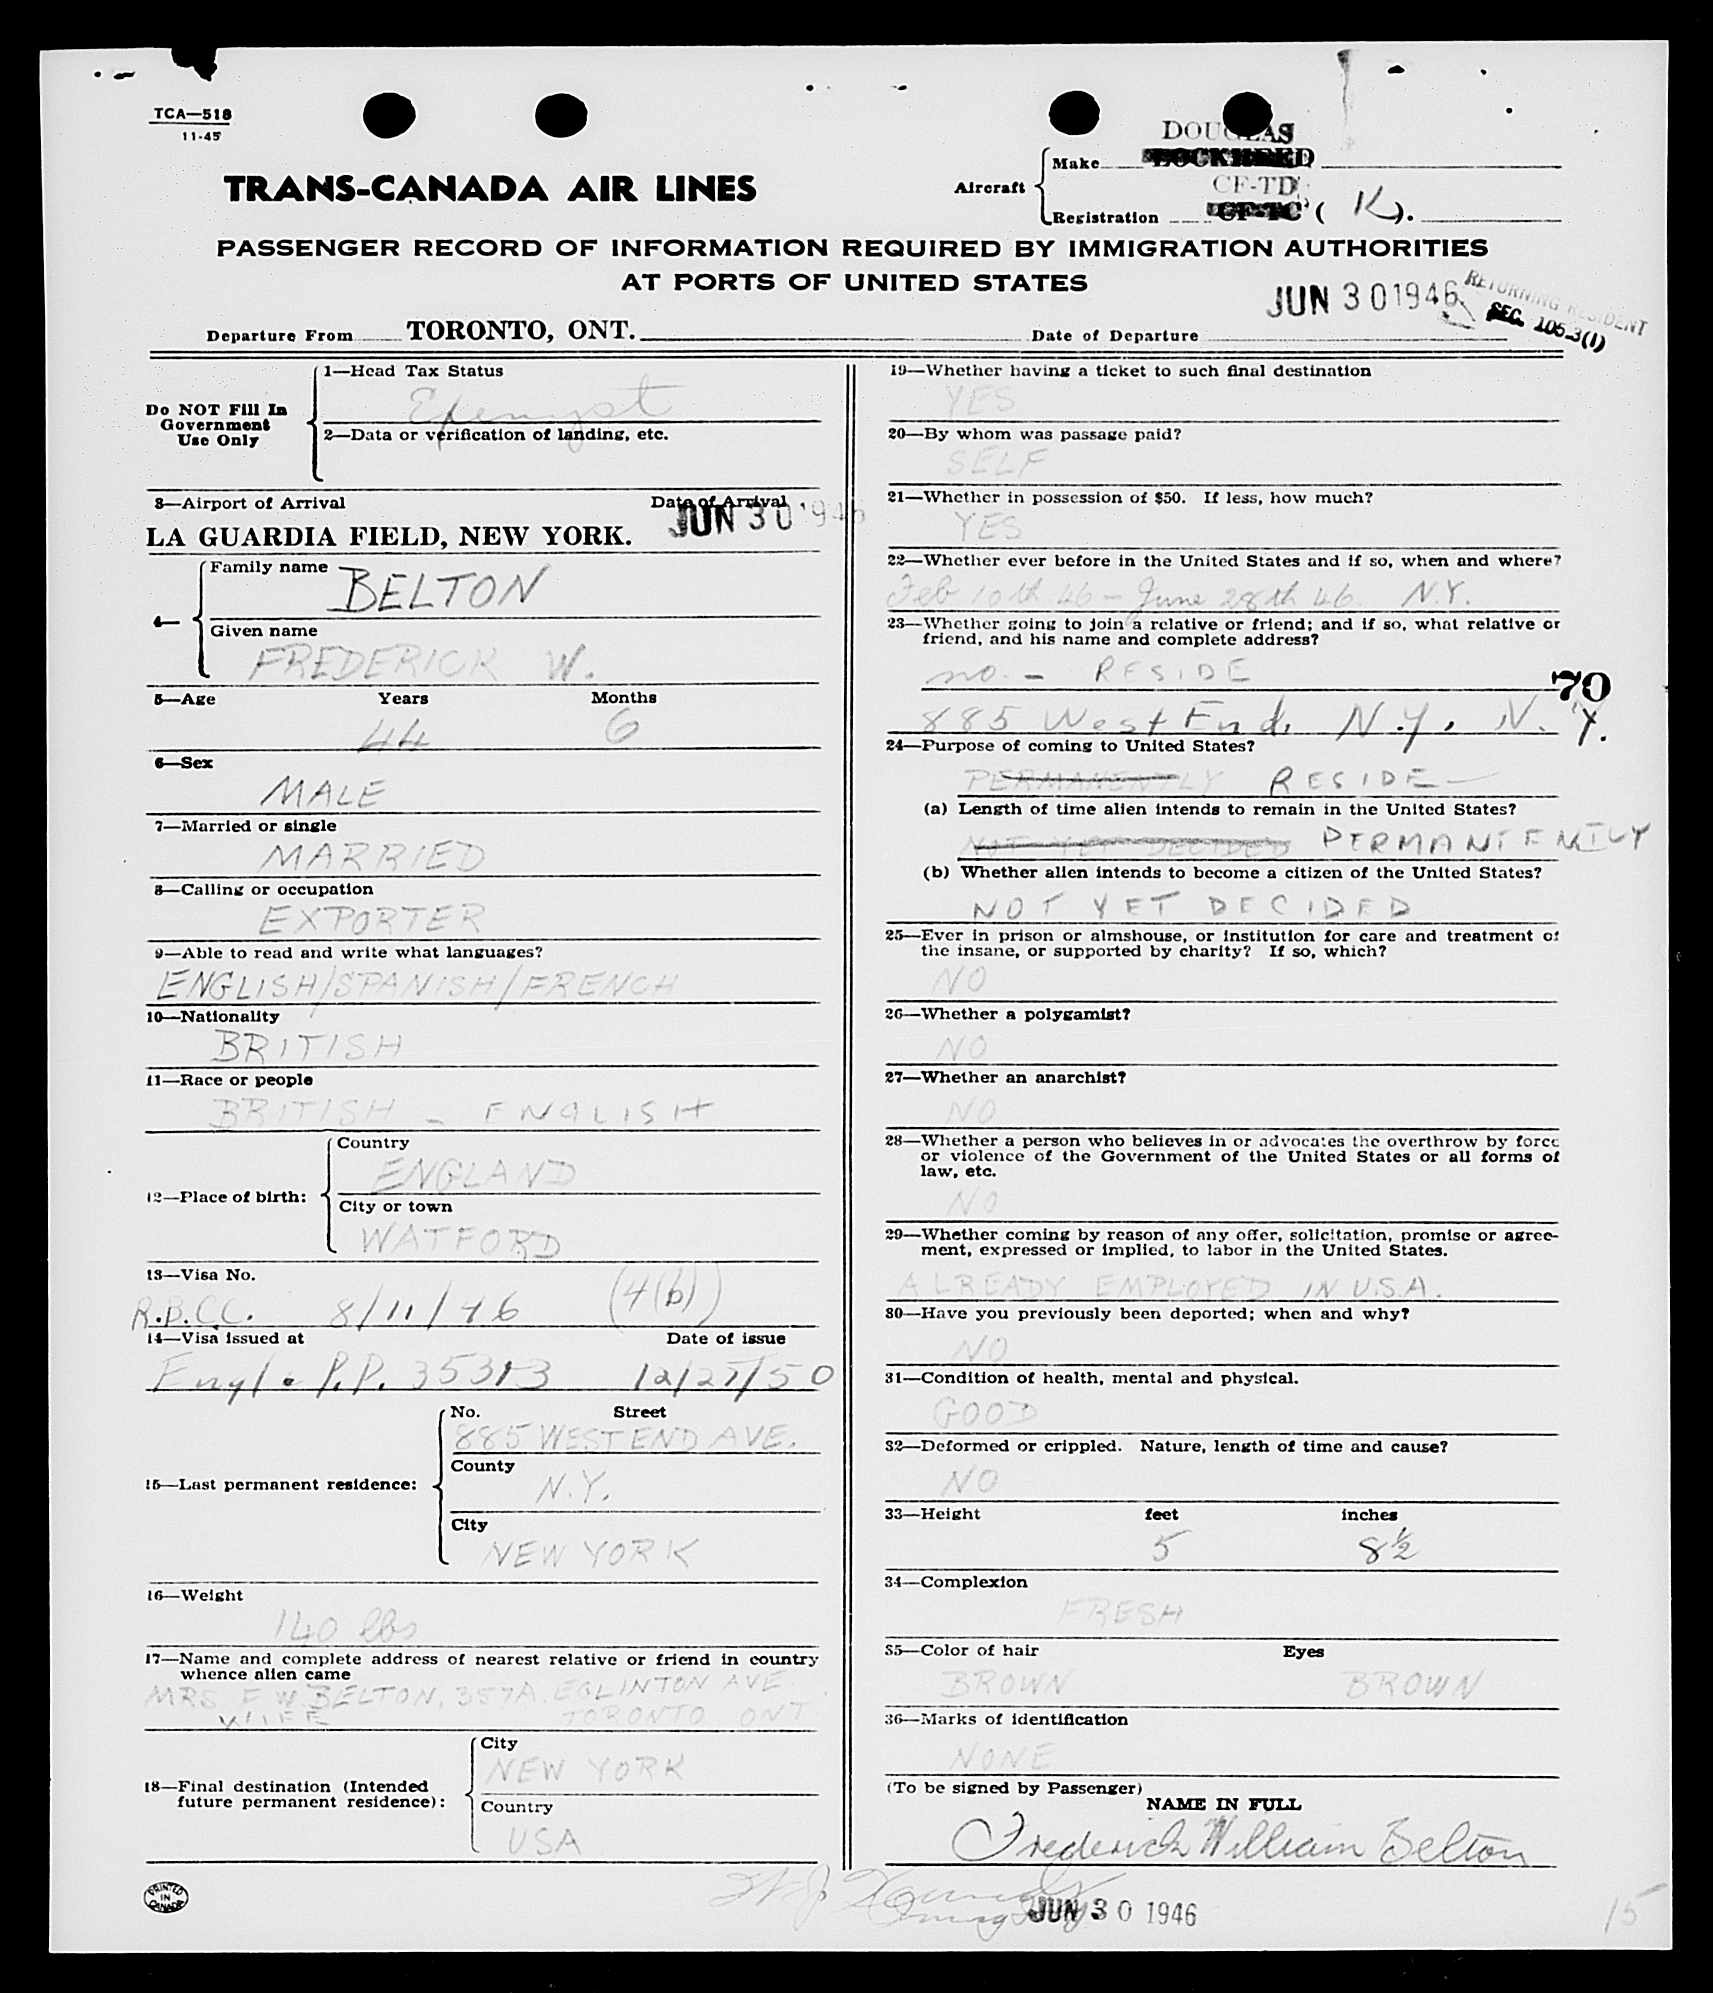 TCA—518
11-45
TRANS-CANADA AIR LINES
Aircraft
DOUGLAS
Make LOCKHEED
CF-TD
Registration CF-TC ( K ).
PASSENGER RECORD OF INFORMATION REQUIRED BY IMMIGRATION AUTHORITIES
AT PORTS OF UNITED STATES
JUN 30 1946
RETURNING RESIDENT
SEC. 105.3(1)
Departure From TORONTO, ONT. Date of Departure
Do NOT Fill In
Government
Use Only
1—Head Tax Status
2—Data or verification of landing, etc.
3—Airport of Arrival Date of Arrival
LA GUARDIA FIELD, NEW YORK. JUN 30 1946
4—
Family name BELTON
Given name
FREDERICK W.
5—Age Years Months
44 6
6—Sex
MALE
7—Married or single
MARRIED
8—Calling or occupation
EXPORTER
9—Able to read and write what languages?
ENGLISH/SPANISH/FRENCH
10—Nationality
BRITISH
11—Race or people
BRITISH - ENGLISH
12—Place of birth:
Country
ENGLAND
City or town
WATFORD
13—Visa No.
R.P.C.C. 8/11/46 (4(b))
14—Visa issued at Date of issue
Engl. P.P. 35313 12/27/50
15—Last permanent residence:
No. Street
885 WEST END AVE.
County
N.Y.
City
NEW YORK
16—Weight
140 lbs
17—Name and complete address of nearest relative or friend in country
whence alien came
MRS F W BELTON, 357A EGLINTON AVE
WIFE TORONTO ONT
18—Final destination (Intended
future permanent residence):
City
NEW YORK
Country
USA
PRINTED
IN
CANADA
19—Whether having a ticket to such final destination
YES
20—By whom was passage paid?
SELF
21—Whether in possession of $50. If less, how much?
YES
22—Whether ever before in the United States and if so, when and where?
Feb 10th 46 - June 28th 46 N.Y.
23—Whether going to join a relative or friend; and if so, what relative or
friend, and his name and complete address?
no. - RESIDE
70
885 West End, N.Y., N.Y.
24—Purpose of coming to United States?
PERMANENTLY RESIDE
(a) Length of time alien intends to remain in the United States?
NOT YET DECIDED PERMANTENTLY
(b) Whether alien intends to become a citizen of the United States?
NOT YET DECIDED
25—Ever in prison or almshouse, or institution for care and treatment of
the insane, or supported by charity? If so, which?
NO
26—Whether a polygamist?
NO
27—Whether an anarchist?
NO
28—Whether a person who believes in or advocates the overthrow by force
or violence of the Government of the United States or all forms of
law, etc.
NO
29—Whether coming by reason of any offer, solicitation, promise or agree-
ment, expressed or implied, to labor in the United States.
ALREADY EMPLOYED IN U.S.A.
30—Have you previously been deported; when and why?
NO
31—Condition of health, mental and physical.
GOOD
32—Deformed or crippled. Nature, length of time and cause?
NO
33—Height feet inches
5 8½
34—Complexion
FRESH
35—Color of hair Eyes
BROWN BROWN
36—Marks of identification
NONE
(To be signed by Passenger)
NAME IN FULL
Frederick William Belton
JUN 30 1946
15